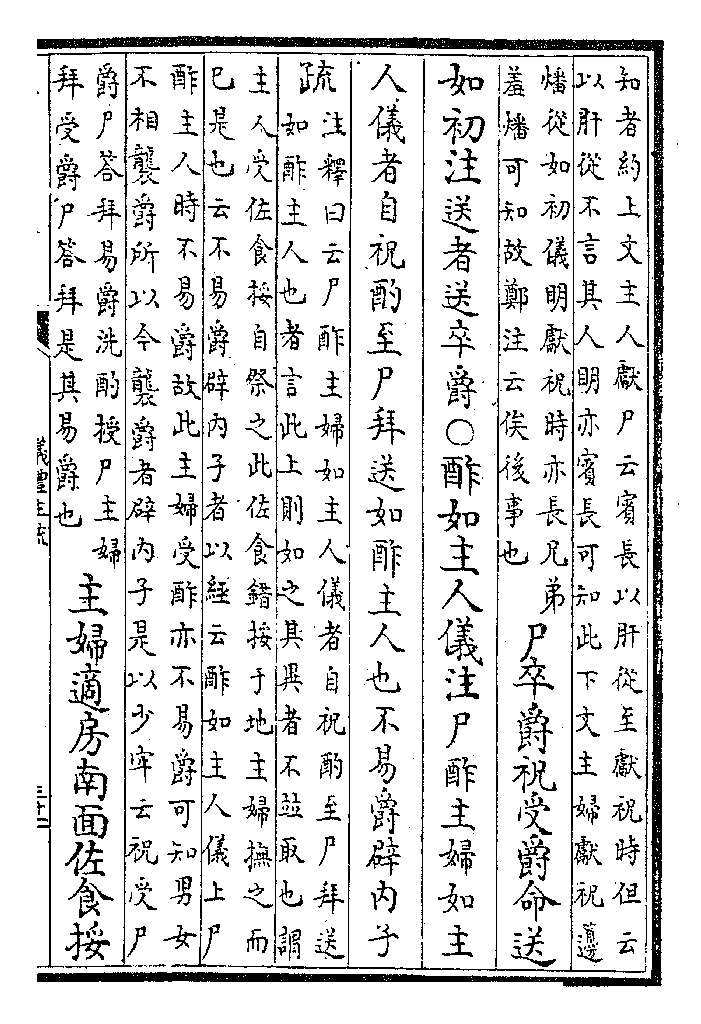 知者約上文主人獻尸云賓長以肝從至獻祝時但云
以肝從不言其人明亦賓長可知此下文主婦獻祝籩
燔從如初儀明獻祝時亦長兄弟
羞燔可知故鄭注云俟後事也
尸卒爵祝受爵命送
如初注送者送卒爵○酢如主人儀注尸酢主婦如主
人儀者自祝酌至尸拜送如酢主人也不易爵辟内子
疏
注釋曰云尸酢主婦如主人儀者自祝酌至尸拜送
如酢主人也者言此上則如之其異者不並取也謂
主人受佐食挼自祭之此佐食錯挼于地主婦撫之而
已是也云不易爵辟内子者以經云酢如主人儀上尸
酢主人時不易爵故此主婦受酢亦不易爵可知男女
不相襲爵所以今襲爵者辟内子是以少牢云祝受尸
爵尸答拜易爵洗酌授尸主婦
拜受爵尸答拜是其易爵也
主婦適房南面佐食挼
儀禮注疏
三十二